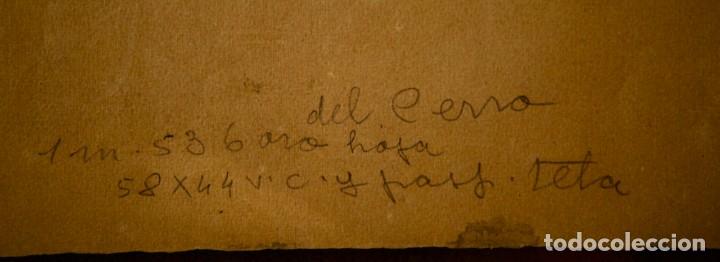 del Cerro
1 m. 536 oro hoja
58 X 44 v. c. y pasp. tela
todocoleccion.net